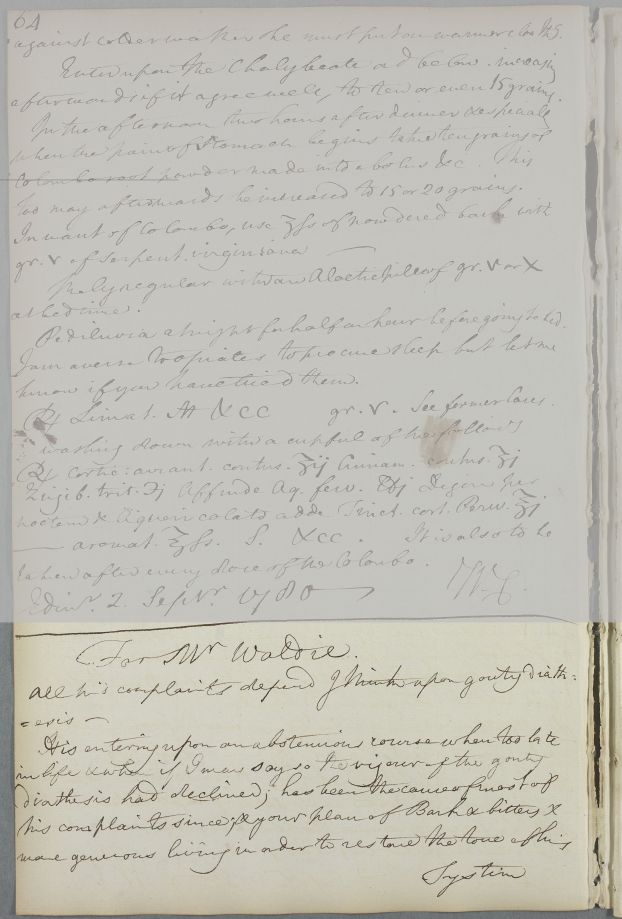 64
against colder weather he must put on warmer cloaths.
Enter upon the Chalybeate as below increasing
afterwards if it agree well, to ten or even 15 grains.
In the afternoon two hours after dinner & especially
when the pain of Stomach begins take ten grains of
Colombo root powder made into a bolus &c. This
too may afterwards be increased to 15 or 20 grains.
In want of Colombo, use ʒss of powdered bark with
gr. V of serpent. virginiana
Belly regular with an Aloetic pill of gr. V or X
at bedtime.
Pediluvia at night for half an hour before going to bed.
I am averse to opiates to procure sleep but let me
know if you have tried them.
℞ Limat. ♂ &cc gr. V. See former Cases.
washing down with a cupful of the following
℞ Cortic: aurant. contus. ʒij Cinnam. contus. ʒj
Zingib. trit. ℈j Affunde Aq. ferv. ℔j Digere per
noctem & liquori colato adde Tinct. cort. Peruv. ℥j
— aromat. ℥ss. S. &cc. It is also to be
taken after every dose of the Colombo.
Edinr. 2. Septr. 1780
W. C.
For Mr Waldie.
All his complaints depend I think upon gouty diath:
=esis —
His entering upon an abstemious course when too late
in life & when if I may say so the vigour of the gouty
diathesis had declined; has been the cause of most of
his complaints since; & your plan of Bark & bitters &
more generous living in order to restore the tone of his
System